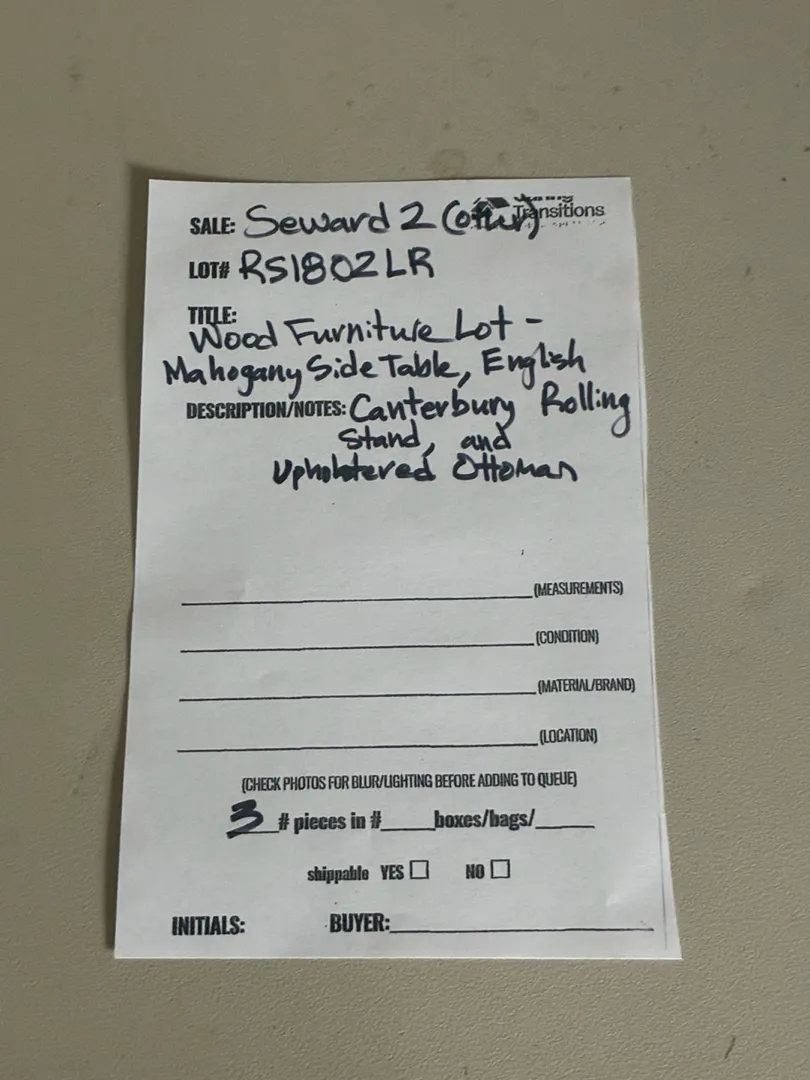 SALE: Seward 2
Transitions
LOT# RS1802LR
TITLE:
Wood Furniture Lot -
Mahogany Side Table, English
DESCRIPTION/NOTES: Canterbury Rolling
Stand, and
Upholstered Ottoman
(MEASUREMENTS)
(CONDITION)
(MATERIAL/BRAND)
(LOCATION)
(CHECK PHOTOS FOR BLUR/LIGHTING BEFORE ADDING TO QUEUE)
3 # pieces in #____boxes/bags/____
shippable YES ☐ NO ☐
INITIALS: BUYER:____